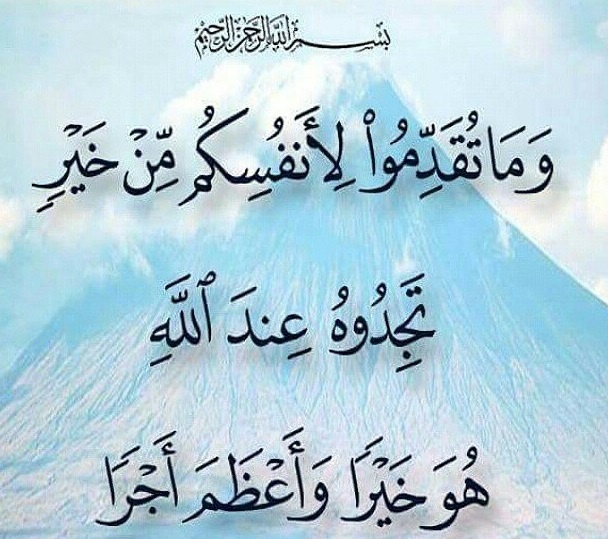 بِسْمِ اللَّهِ الرَّحْمَٰنِ الرَّحِيمِ
وَمَا تُقَدِّمُوا۟ لِأَنفُسِكُم مِّنْ خَيْرٍ
تَجِدُوهُ عِندَ ٱللَّهِ
هُوَ خَيْرًا وَأَعْظَمَ أَجْرًا